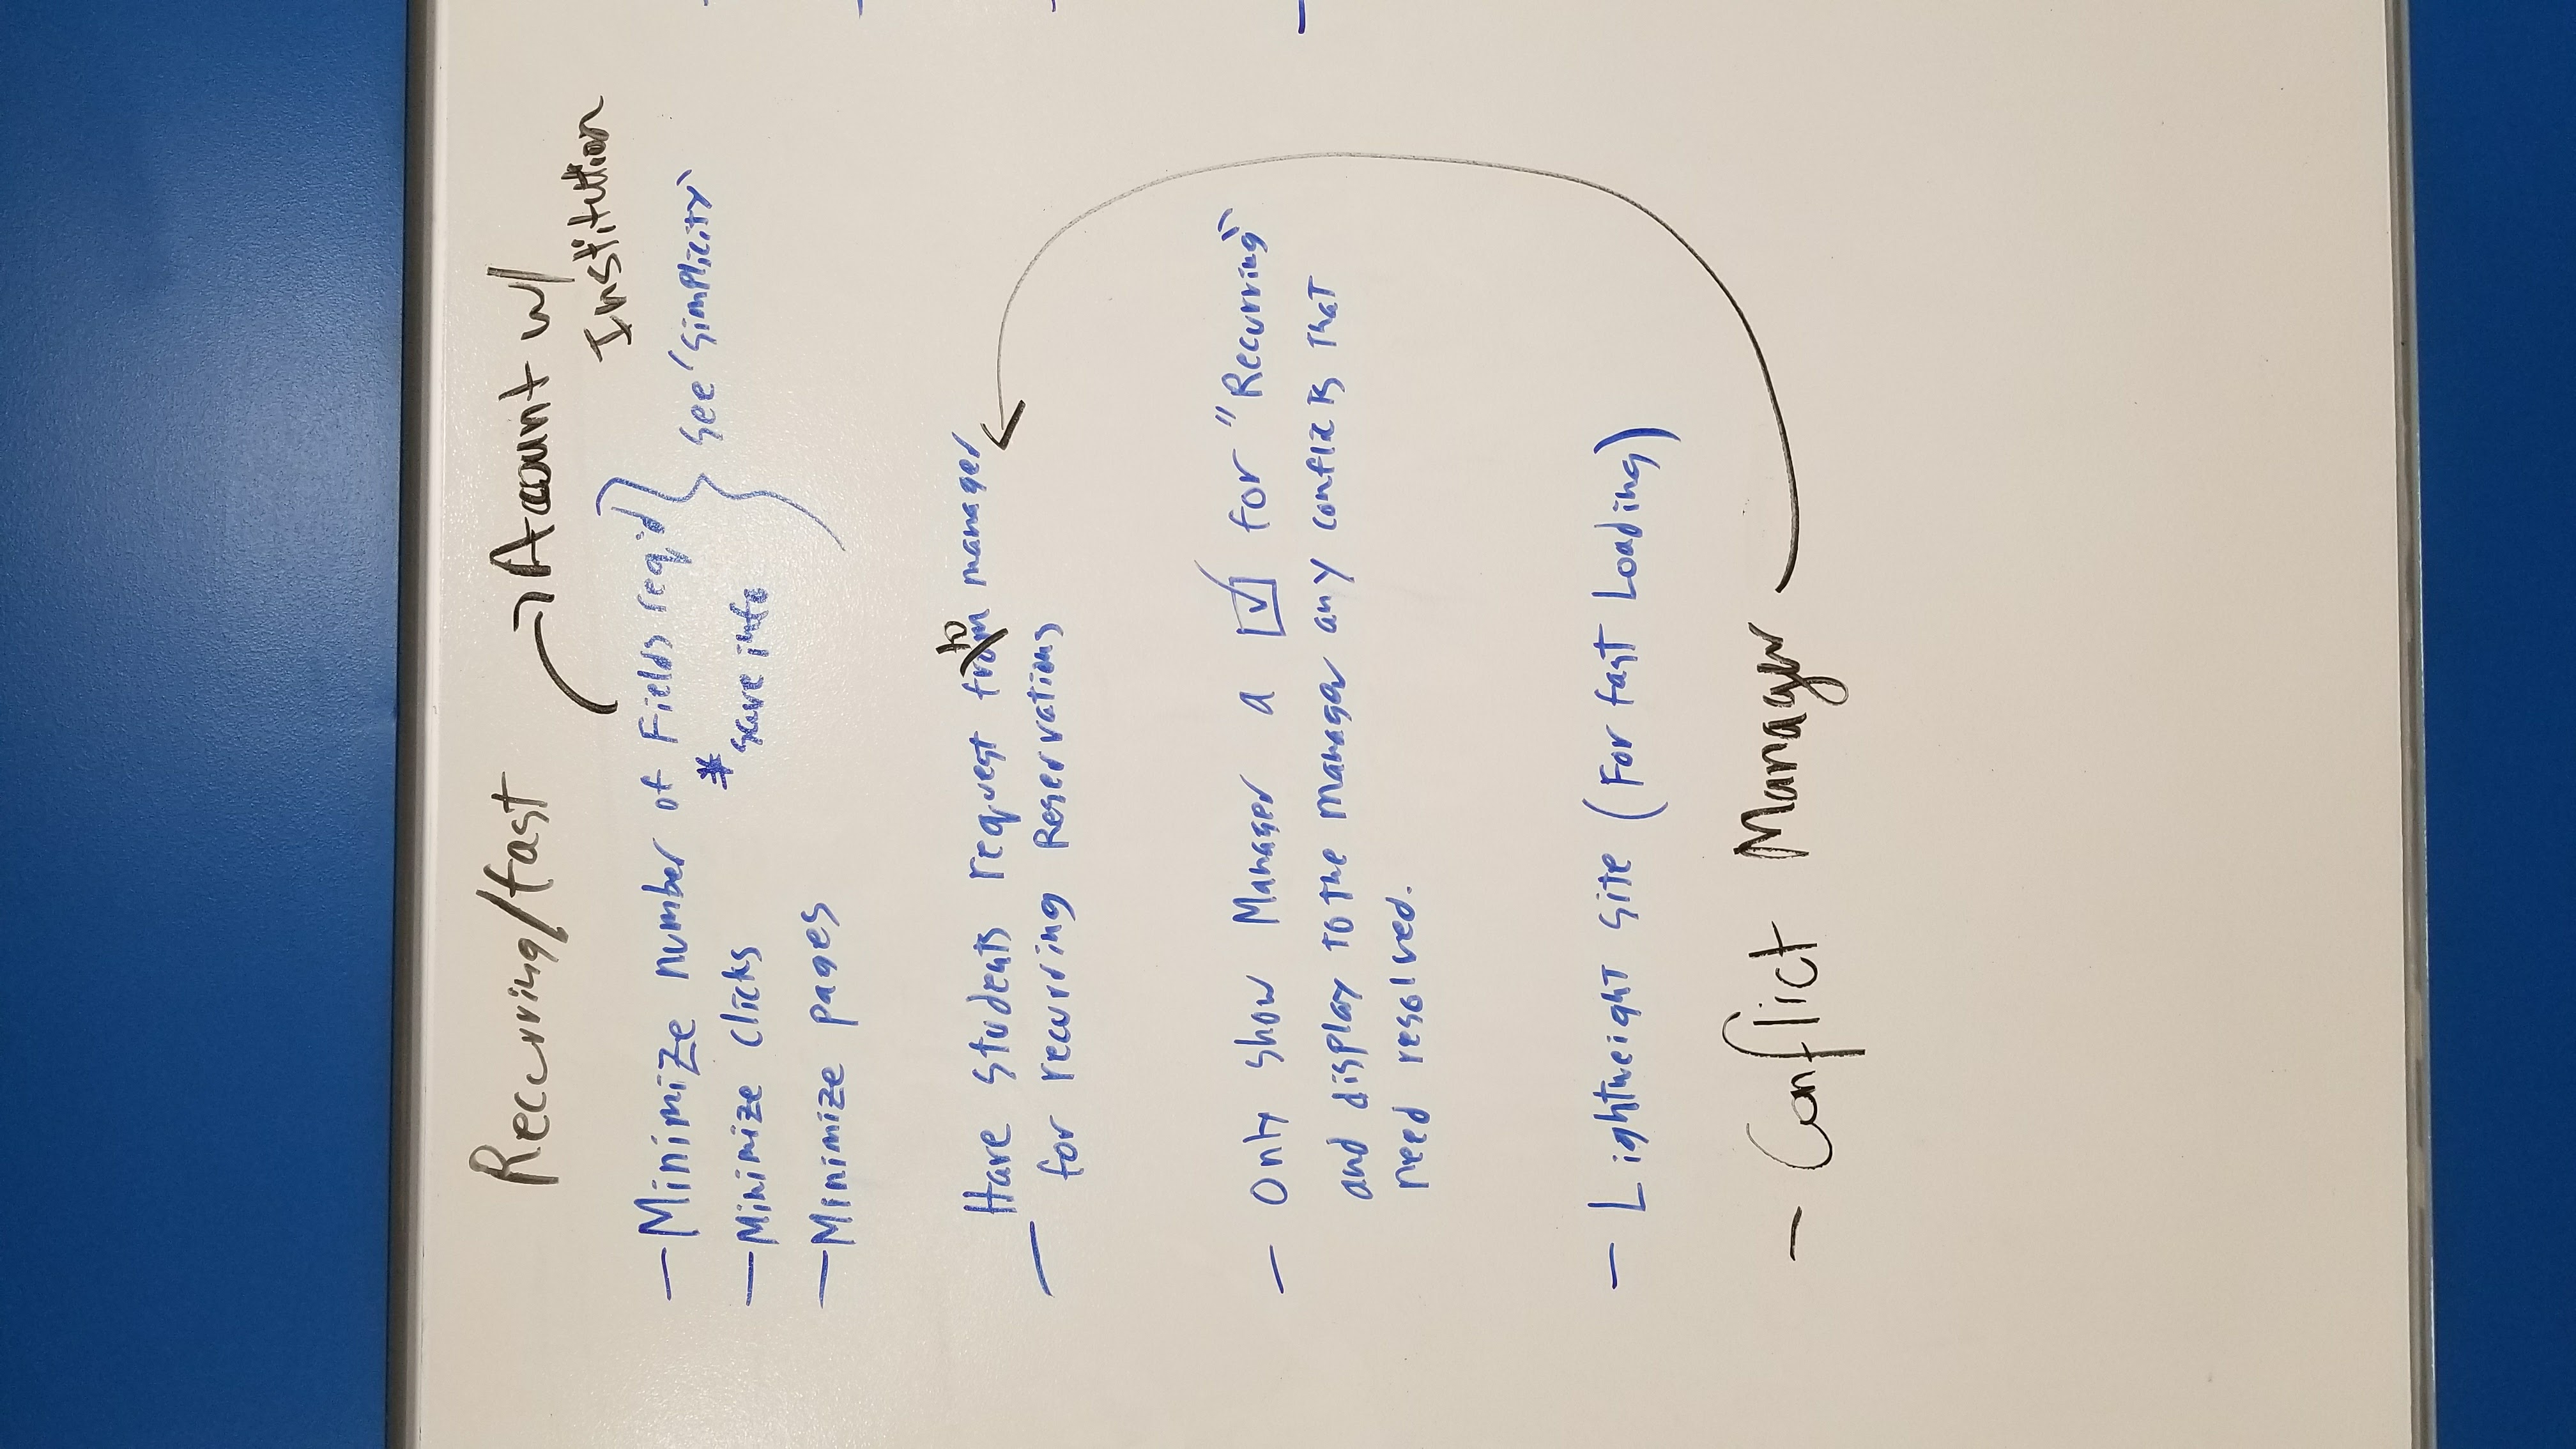 Recurring/fast
Account w/
Institution
- Minimize number of Fields req'd
* save info
see 'simplicity'
- Minimize clicks
- Minimize pages
to
- Have students request from manager
for recurring Reservations
- Only show Manager a ☑ for "Recurring"
and display to the manager any conflicts that
need resolved.
- Lightweight site (For fast Loading)
- Conflict Manager